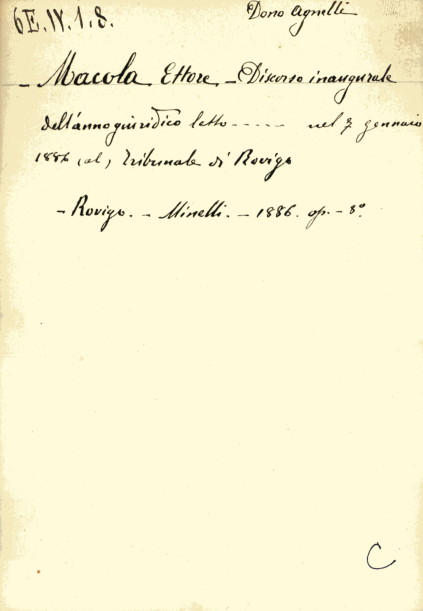 6E.IV.1.8.
Dono Agnelli
- Macola Ettore - Discorso inaugurale
dell'anno giuridico letto ----- nel 7 gennaio
1886 (al) Tribunale di Rovigo
- Rovigo. - Minelli. - 1886. op. - 8º.
C